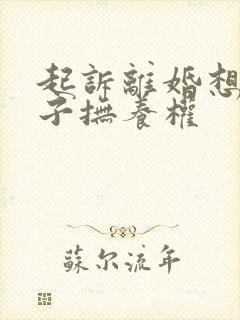 起訴離婚想
子撫養權
蘇尔流年